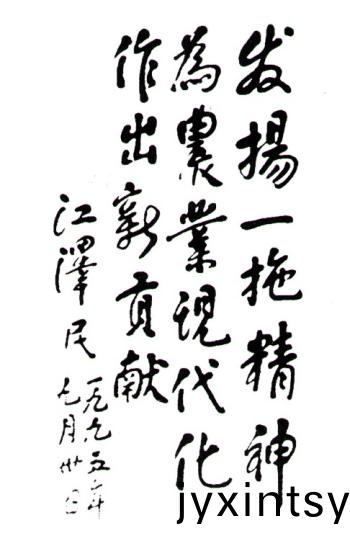 发揚一拖精神
為農業現代化
作出新貢献
江澤民
一九九五年
七月卅日
jyxintsy